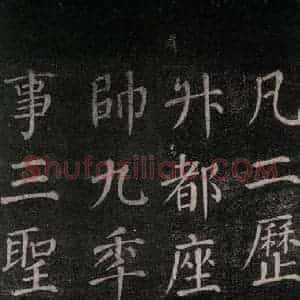 凡二歷
升都座
帥九秊
事三聖
Shufaziliao.COM